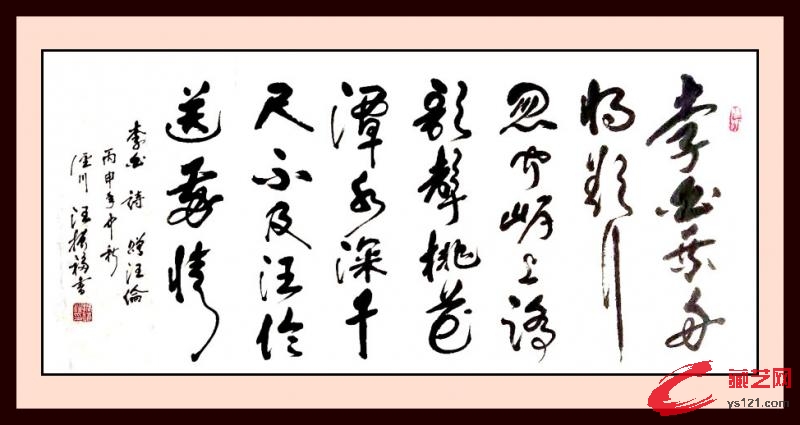 李白乘舟
将欲行
忽闻岸上踏
歌聲桃花
潭水深千
尺不及汪倫
送我情
李白 诗 赠汪倫
丙申年中秋
泾川 汪振福书
藏艺网
ys121.com